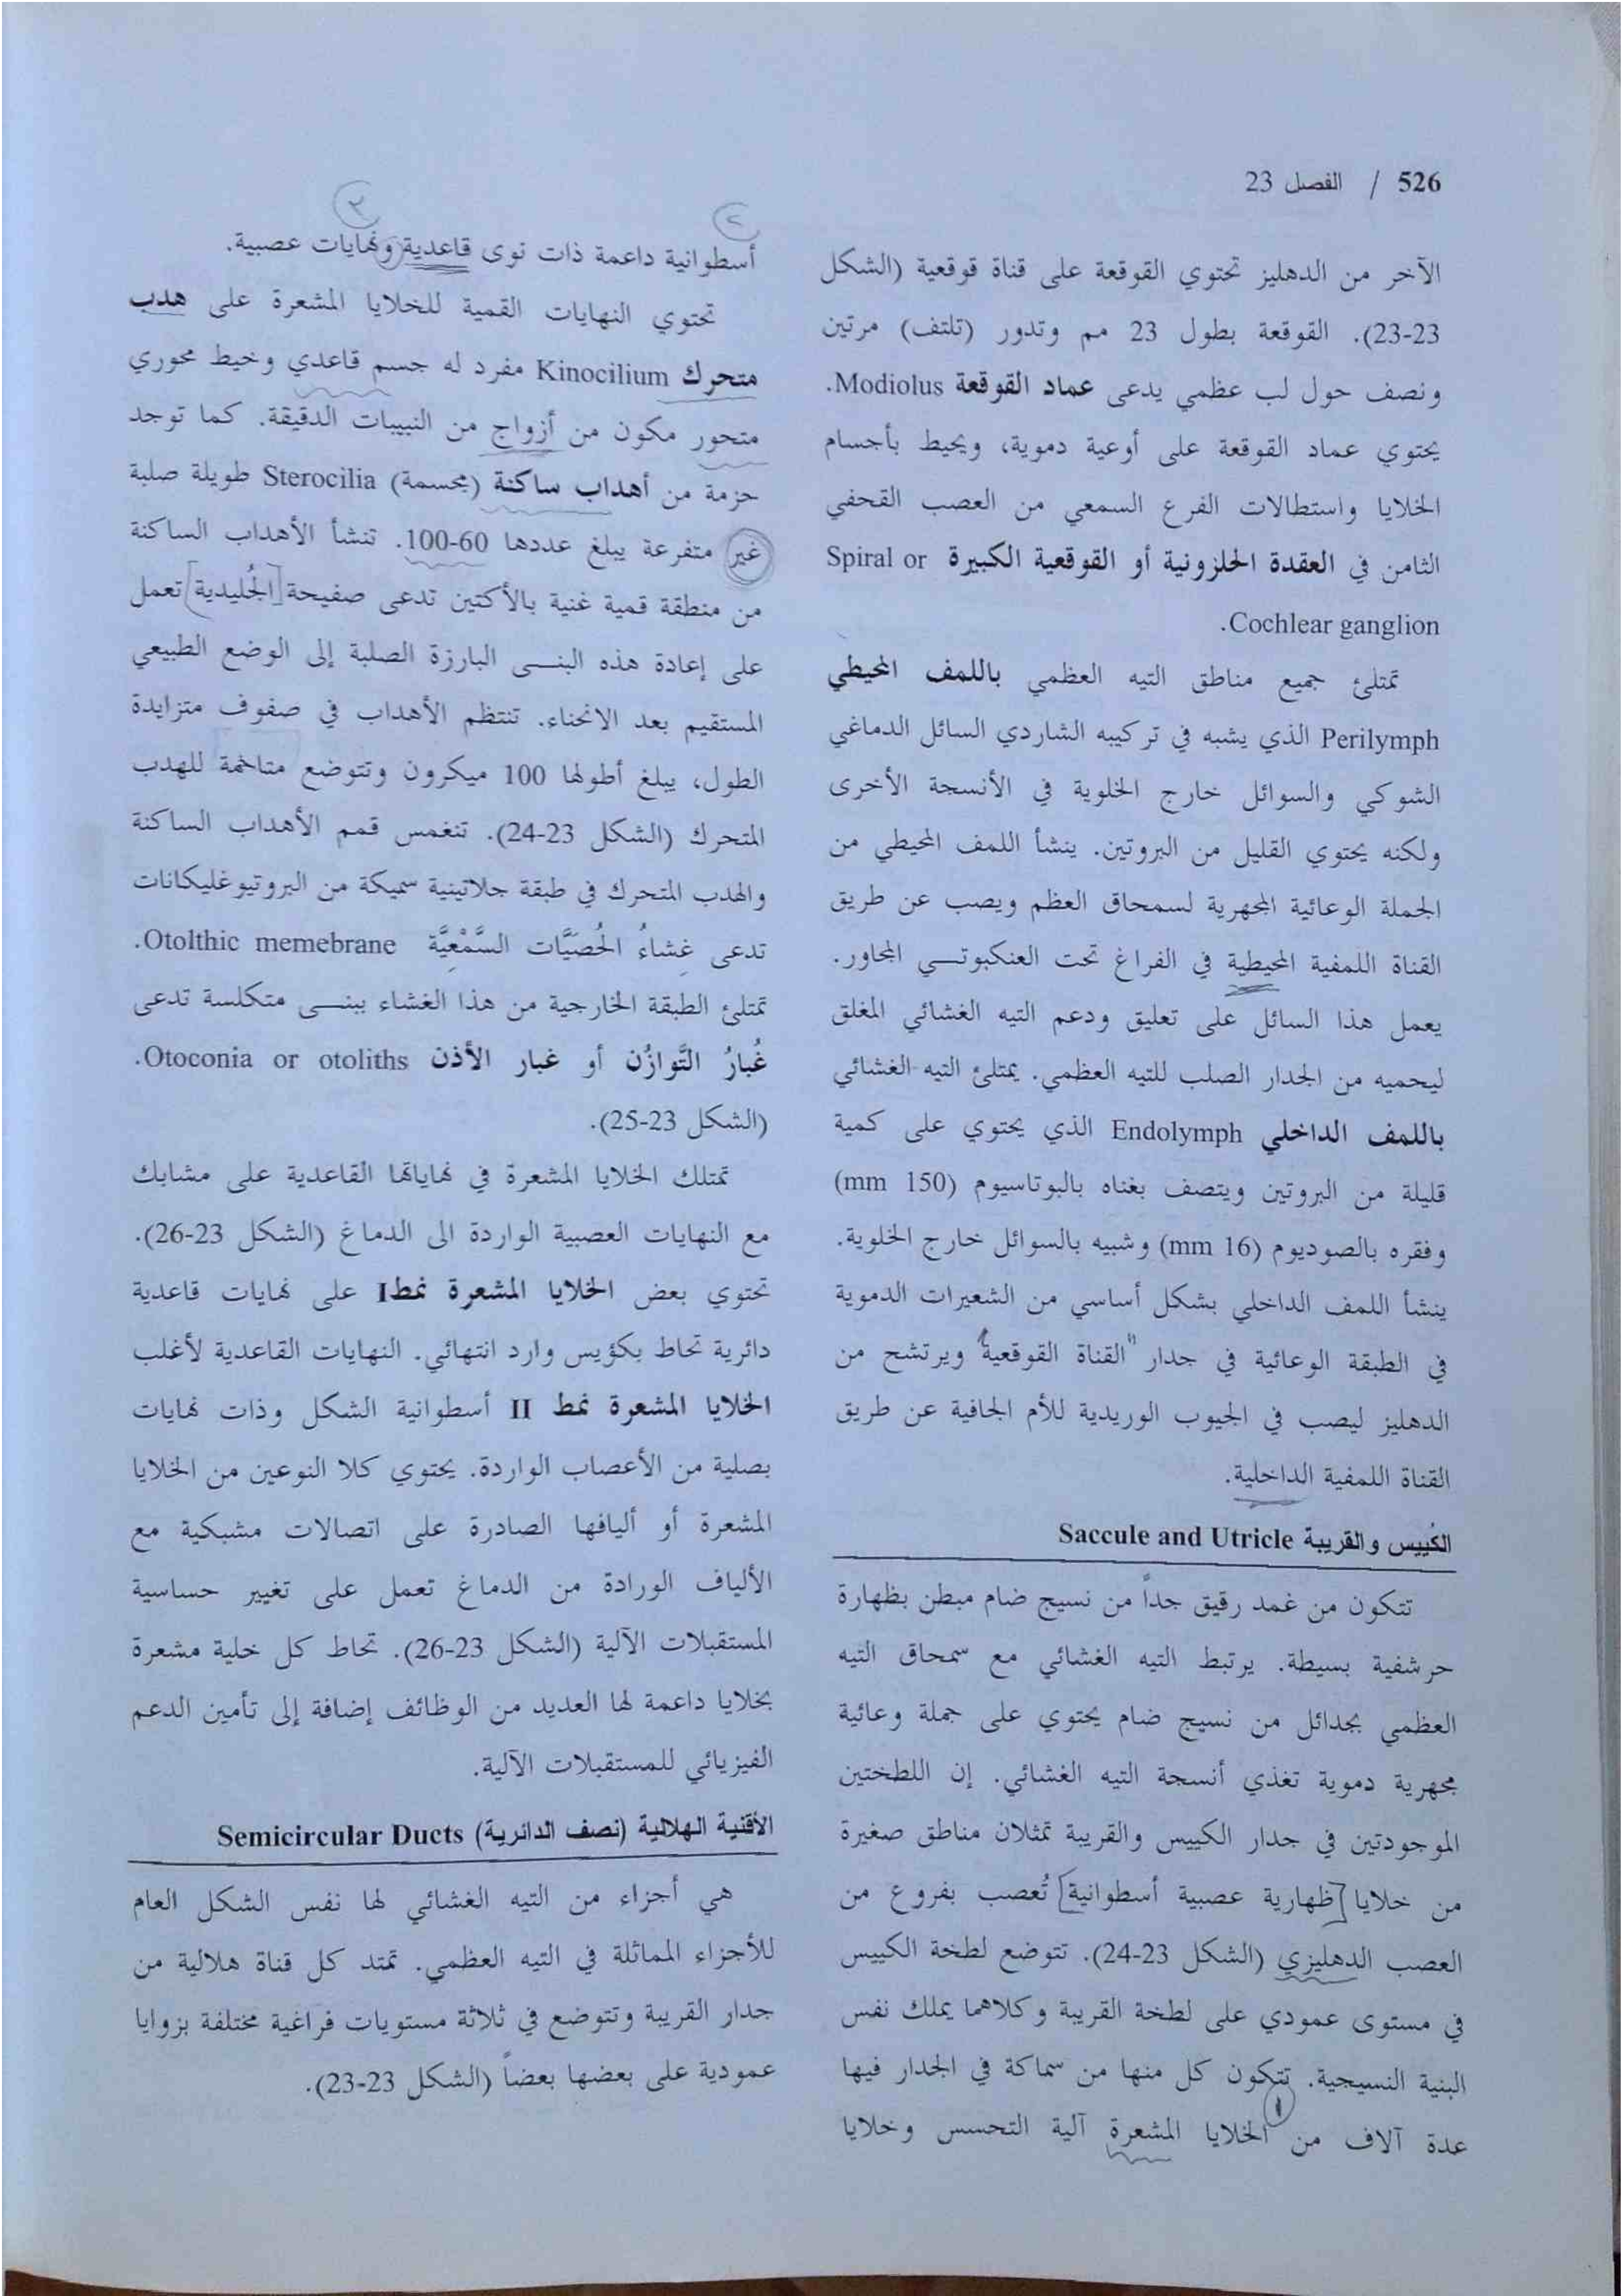 526 / الفصل 23
الآخر من الدهليز تحتوي القوقعة على قناة قوقعية (الشكل
23-23). القوقعة بطول 23 مم وتدور (تلتف) مرتين
ونصف حول لب عظمي يدعى عماد القوقعة Modiolus.
يحتوي عماد القوقعة على أوعية دموية، ويحيط بأجسام
الخلايا واستطالات الفرع السمعي من العصب القحفي
الثامن في العقدة الحلزونية أو القوقعية الكبيرة Spiral or
Cochlear ganglion.
تمتلئ جميع مناطق التيه العظمي باللمف المحيطي
Perilymph الذي يشبه في تركيبه الشاردي السائل الدماغي
الشوكي والسوائل خارج الخلوية في الأنسجة الأخرى
ولكنه يحتوي القليل من البروتين. ينشأ اللمف المحيطي من
الجملة الوعائية المجهرية لسمحاق العظم ويصب عن طريق
القناة اللمفية المحيطية في الفراغ تحت العنكبوتــي المجاور.
يعمل هذا السائل على تعليق ودعم التيه الغشائي المغلق
ليحميه من الجدار الصلب للتيه العظمي. يمتلئ التيه الغشائي
باللمف الداخلي Endolymph الذي يحتوي على كمية
قليلة من البروتين ويتصف بغناه بالبوتاسيوم (150 mm)
وفقره بالصوديوم (16 mm) وشبيه بالسوائل خارج الخلوية.
ينشأ اللمف الداخلي بشكل أساسي من الشعيرات الدموية
في الطبقة الوعائية في جدار "القناة القوقعية" ويرتشح من
الدهليز ليصب في الجيوب الوريدية للأم الجافية عن طريق
القناة اللمفية الداخلية.
الكُييس والقريبة Saccule and Utricle
تتكون من غمد رقيق جداً من نسيج ضام مبطن بظهارة
حرشفية بسيطة. يرتبط التيه الغشائي مع سمحاق التيه
العظمي بجدائل من نسيج ضام يحتوي على جملة وعائية
مجهرية دموية تغذي أنسجة التيه الغشائي. إن اللطختين
الموجودتين في جدار الكييس والقريبة تمثلان مناطق صغيرة
من خلايا [ظهارية عصبية أسطوانية] تُعصب بفروع من
العصب الدهليزي (الشكل 23-24). تتوضع لطخة الكييس
في مستوى عمودي على لطخة القريبة وكلاهما يملك نفس
البنية النسيجية. تتكون كل منها من سماكة في الجدار فيها
١
عدة آلاف من الخلايا المشعرة آلية التحسس وخلايا
٢
٣
أسطوانية داعمة ذات نوى قاعدية ونهايات عصبية.
تحتوي النهايات القمية للخلايا المشعرة على هدب
متحرك Kinocilium مفرد له جسم قاعدي وخيط محوري
متحور مكون من أزواج من النبيبات الدقيقة. كما توجد
حزمة من أهداب ساكنة (مجسمة) Sterocilia طويلة صلبة
غير متفرعة يبلغ عددها 60-100. تنشأ الأهداب الساكنة
من منطقة قمية غنية بالأكتين تدعى صفيحة [الجُليدية] تعمل
على إعادة هذه البنــى البارزة الصلبة إلى الوضع الطبيعي
المستقيم بعد الانحناء. تنتظم الأهداب في صفوف متزايدة
الطول، يبلغ أطولها 100 ميكرون وتتوضع متاخمة للهدب
المتحرك (الشكل 23-24). تنغمس قمم الأهداب الساكنة
والهدب المتحرك في طبقة جلاتينية سميكة من البروتيوغليكانات
تدعى غِشاءُ الحُصَيَّات السَّمْعِيَّة Otolthic memebrane.
تمتلئ الطبقة الخارجية من هذا الغشاء ببنــى متكلسة تدعى
غُبارُ التَّوازُن أو غبار الأذن Otoconia or otoliths.
(الشكل 23-25).
تمتلك الخلايا المشعرة في نهاياتها القاعدية على مشابك
مع النهايات العصبية الواردة الى الدماغ (الشكل 23-26).
تحتوي بعض الخلايا المشعرة نمطI على نهايات قاعدية
دائرية تحاط بكؤيس وارد انتهائي. النهايات القاعدية لأغلب
الخلايا المشعرة نمط II أسطوانية الشكل وذات نهايات
بصلية من الأعصاب الواردة. يحتوي كلا النوعين من الخلايا
المشعرة أو أليافها الصادرة على اتصالات مشبكية مع
الألياف الورادة من الدماغ تعمل على تغيير حساسية
المستقبلات الآلية (الشكل 23-26). تحاط كل خلية مشعرة
بخلايا داعمة لها العديد من الوظائف إضافة إلى تأمين الدعم
الفيزيائي للمستقبلات الآلية.
الأقنية الهلالية (نصف الدائرية) Semicircular Ducts
هي أجزاء من التيه الغشائي لها نفس الشكل العام
للأجزاء المماثلة في التيه العظمي. تمتد كل قناة هلالية من
جدار القريبة وتتوضع في ثلاثة مستويات فراغية مختلفة بزوايا
عمودية على بعضها بعضاً (الشكل 23-23).